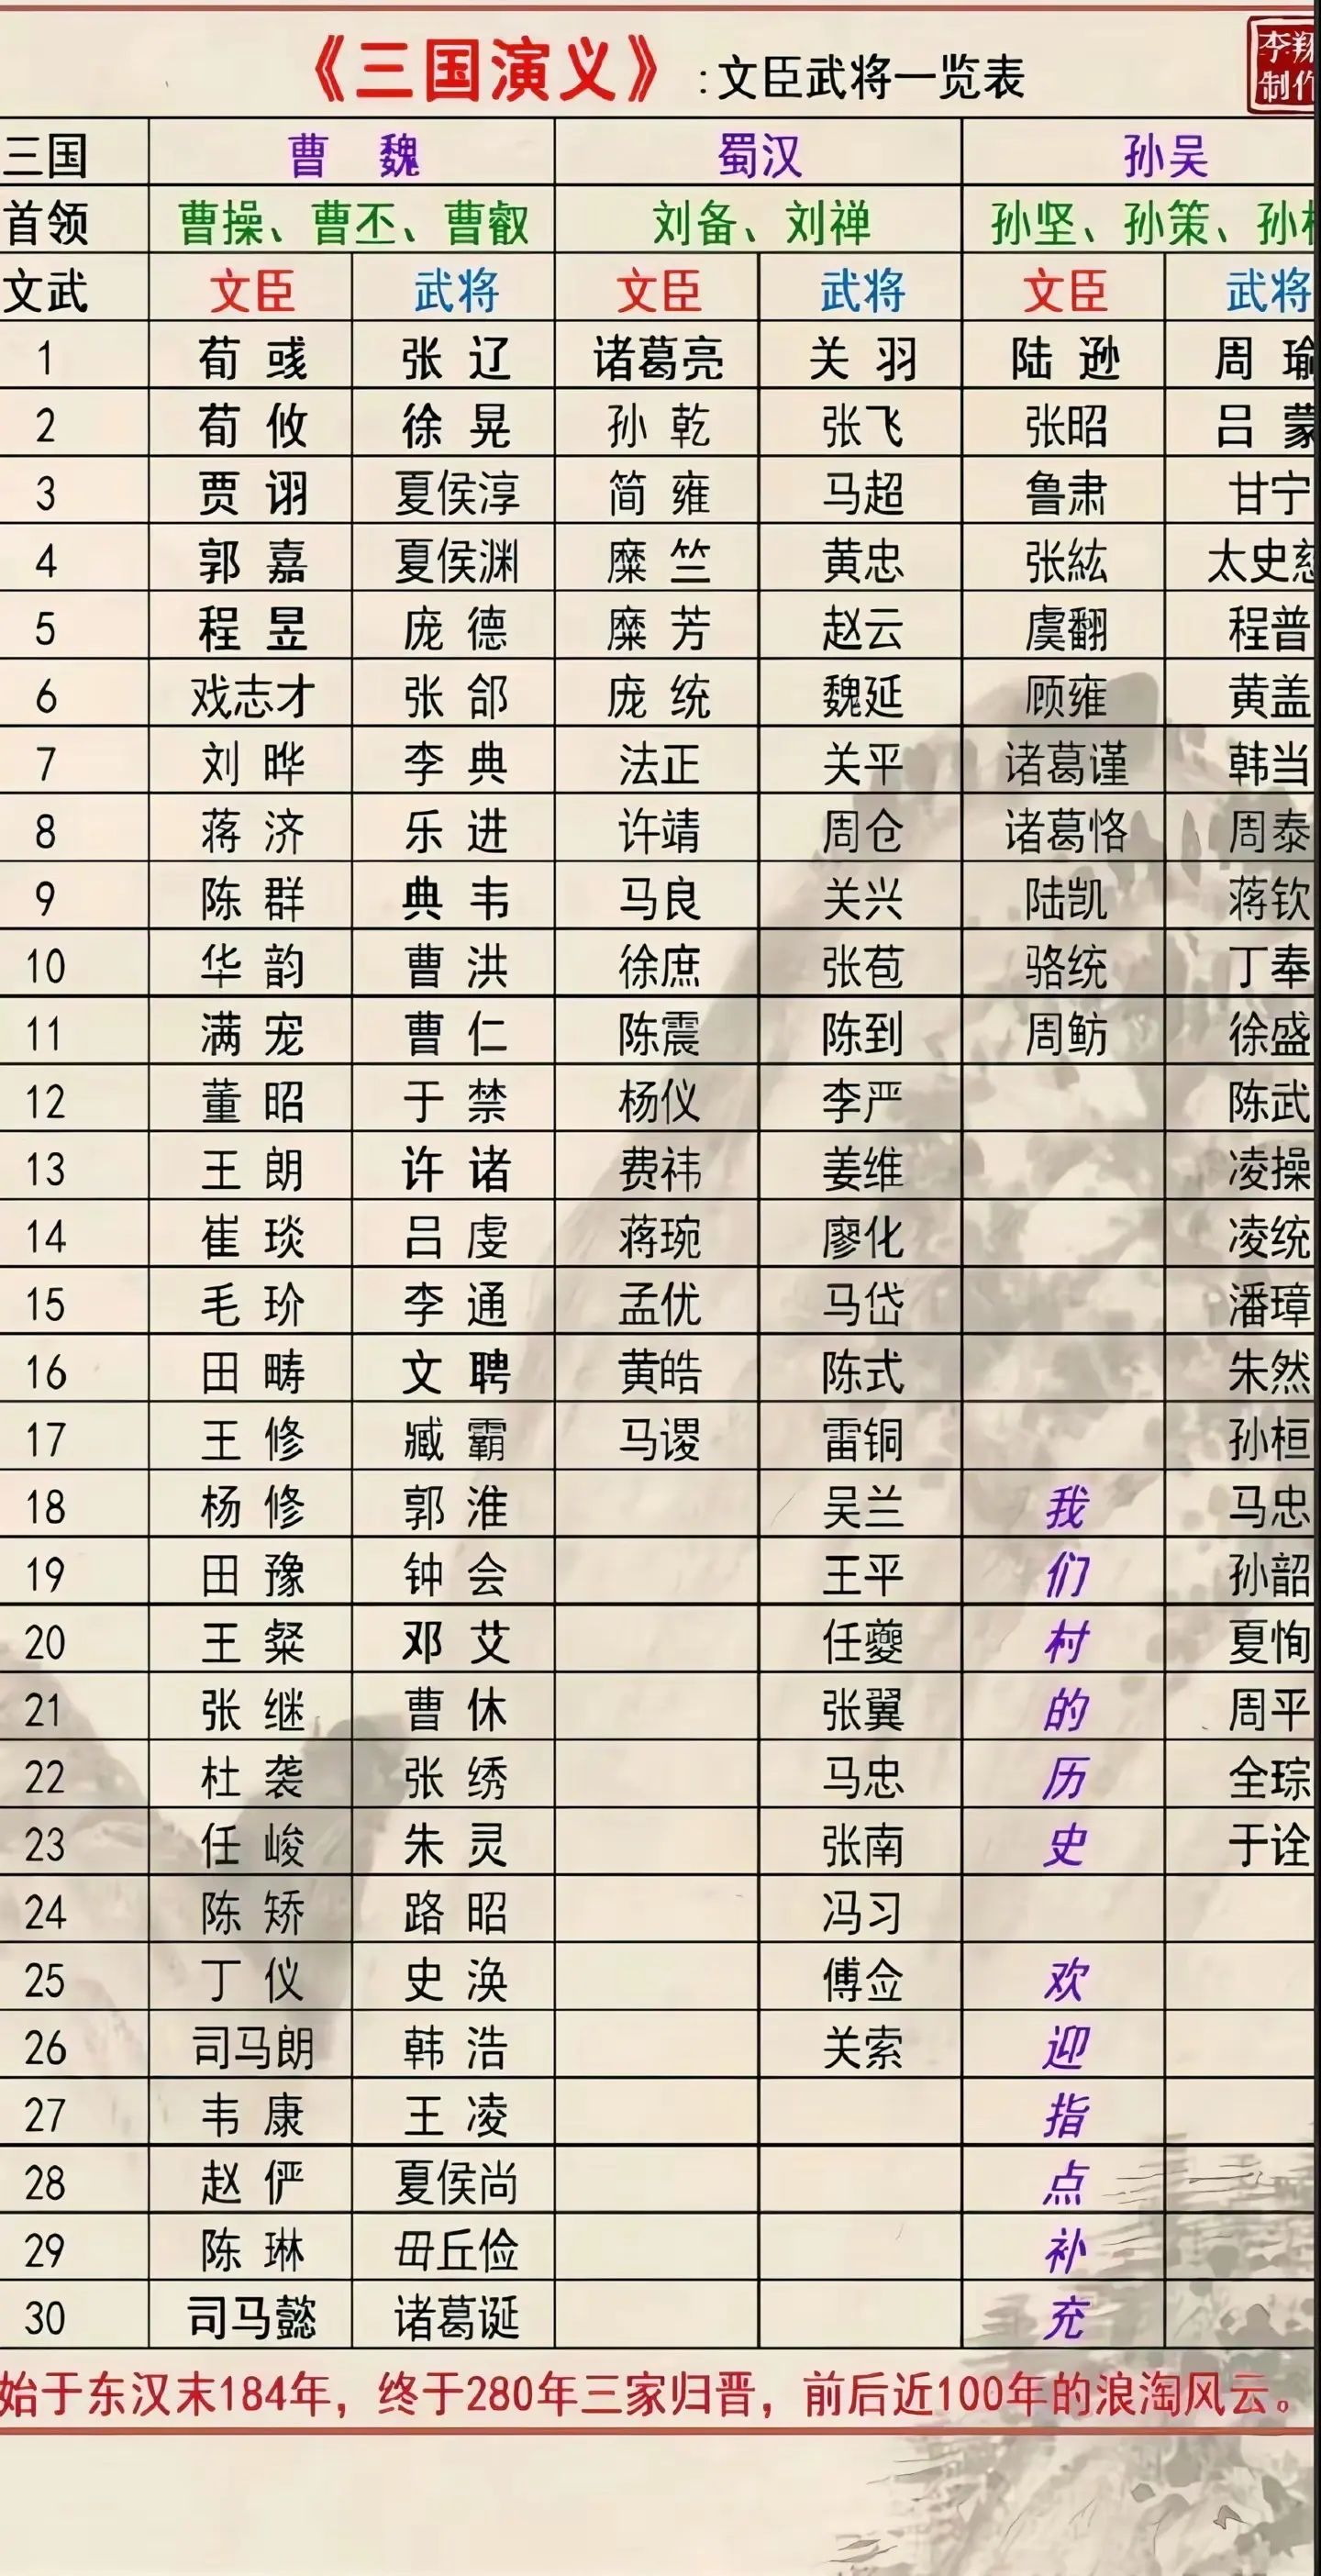 《三国演义》:文臣武将一览表
李翔
制作
三国 曹 魏 蜀汉 孙吴
首领 曹操、曹丕、曹叡 刘备、刘禅 孙坚、孙策、孙权
文武 文臣 武将 文臣 武将 文臣 武将
1 荀 彧 张 辽 诸葛亮 关 羽 陆 逊 周 瑜
2 荀 攸 徐 晃 孙 乾 张飞 张昭 吕 蒙
3 贾 诩 夏侯淳 简 雍 马超 鲁肃 甘宁
4 郭 嘉 夏侯渊 糜 竺 黄忠 张紘 太史慈
5 程 昱 庞 德 糜 芳 赵云 虞翻 程普
6 戏志才 张 郃 庞 统 魏延 顾雍 黄盖
7 刘 晔 李 典 法正 关平 诸葛谨 韩当
8 蒋 济 乐 进 许靖 周仓 诸葛恪 周泰
9 陈 群 典 韦 马良 关兴 陆凯 蒋钦
10 华 韵 曹 洪 徐庶 张苞 骆统 丁奉
11 满 宠 曹 仁 陈震 陈到 周鲂 徐盛
12 董 昭 于 禁 杨仪 李严 陈武
13 王 朗 许 诸 费祎 姜维 凌操
14 崔 琰 吕 虔 蒋琬 廖化 凌统
15 毛 玠 李 通 孟优 马岱 潘璋
16 田 畴 文 聘 黄皓 陈式 朱然
17 王 修 臧 霸 马谡 雷铜 孙桓
18 杨 修 郭 淮 吴兰 我 马忠
19 田 豫 钟 会 王平 们 孙韶
20 王 粲 邓 艾 任夔 村 夏恂
21 张 继 曹 休 张翼 的 周平
22 杜 袭 张 绣 马忠 历 全琮
23 任 峻 朱 灵 张南 史 于诠
24 陈 矫 路 昭 冯习
25 丁 仪 史 涣 傅佥 欢
26 司马朗 韩 浩 关索 迎
27 韦 康 王 凌 指
28 赵 俨 夏侯尚 点
29 陈 琳 毌丘俭 补
30 司马懿 诸葛诞 充
始于东汉末184年，终于280年三家归晋，前后近100年的浪淘风云。